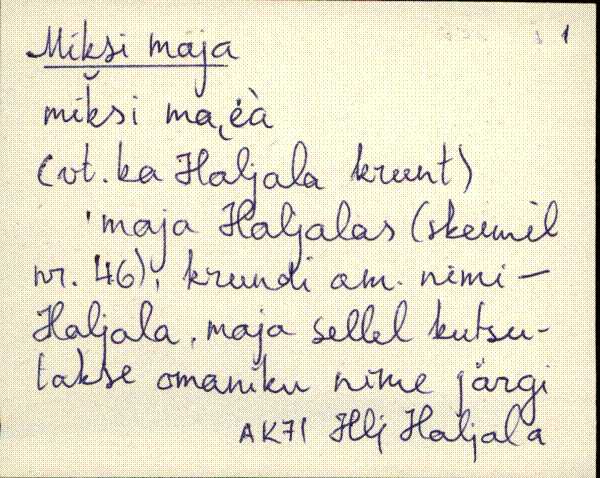 1
Miksi maja
mĭksi ma͔ėà
(vt. ka Haljala krunt)
'maja Haljalas (skeemil
nr. 46), krundi am. nimi –
Haljala, maja sellel kutsu-
takse omaniku nime järgi
AK71 Hlj Haljala